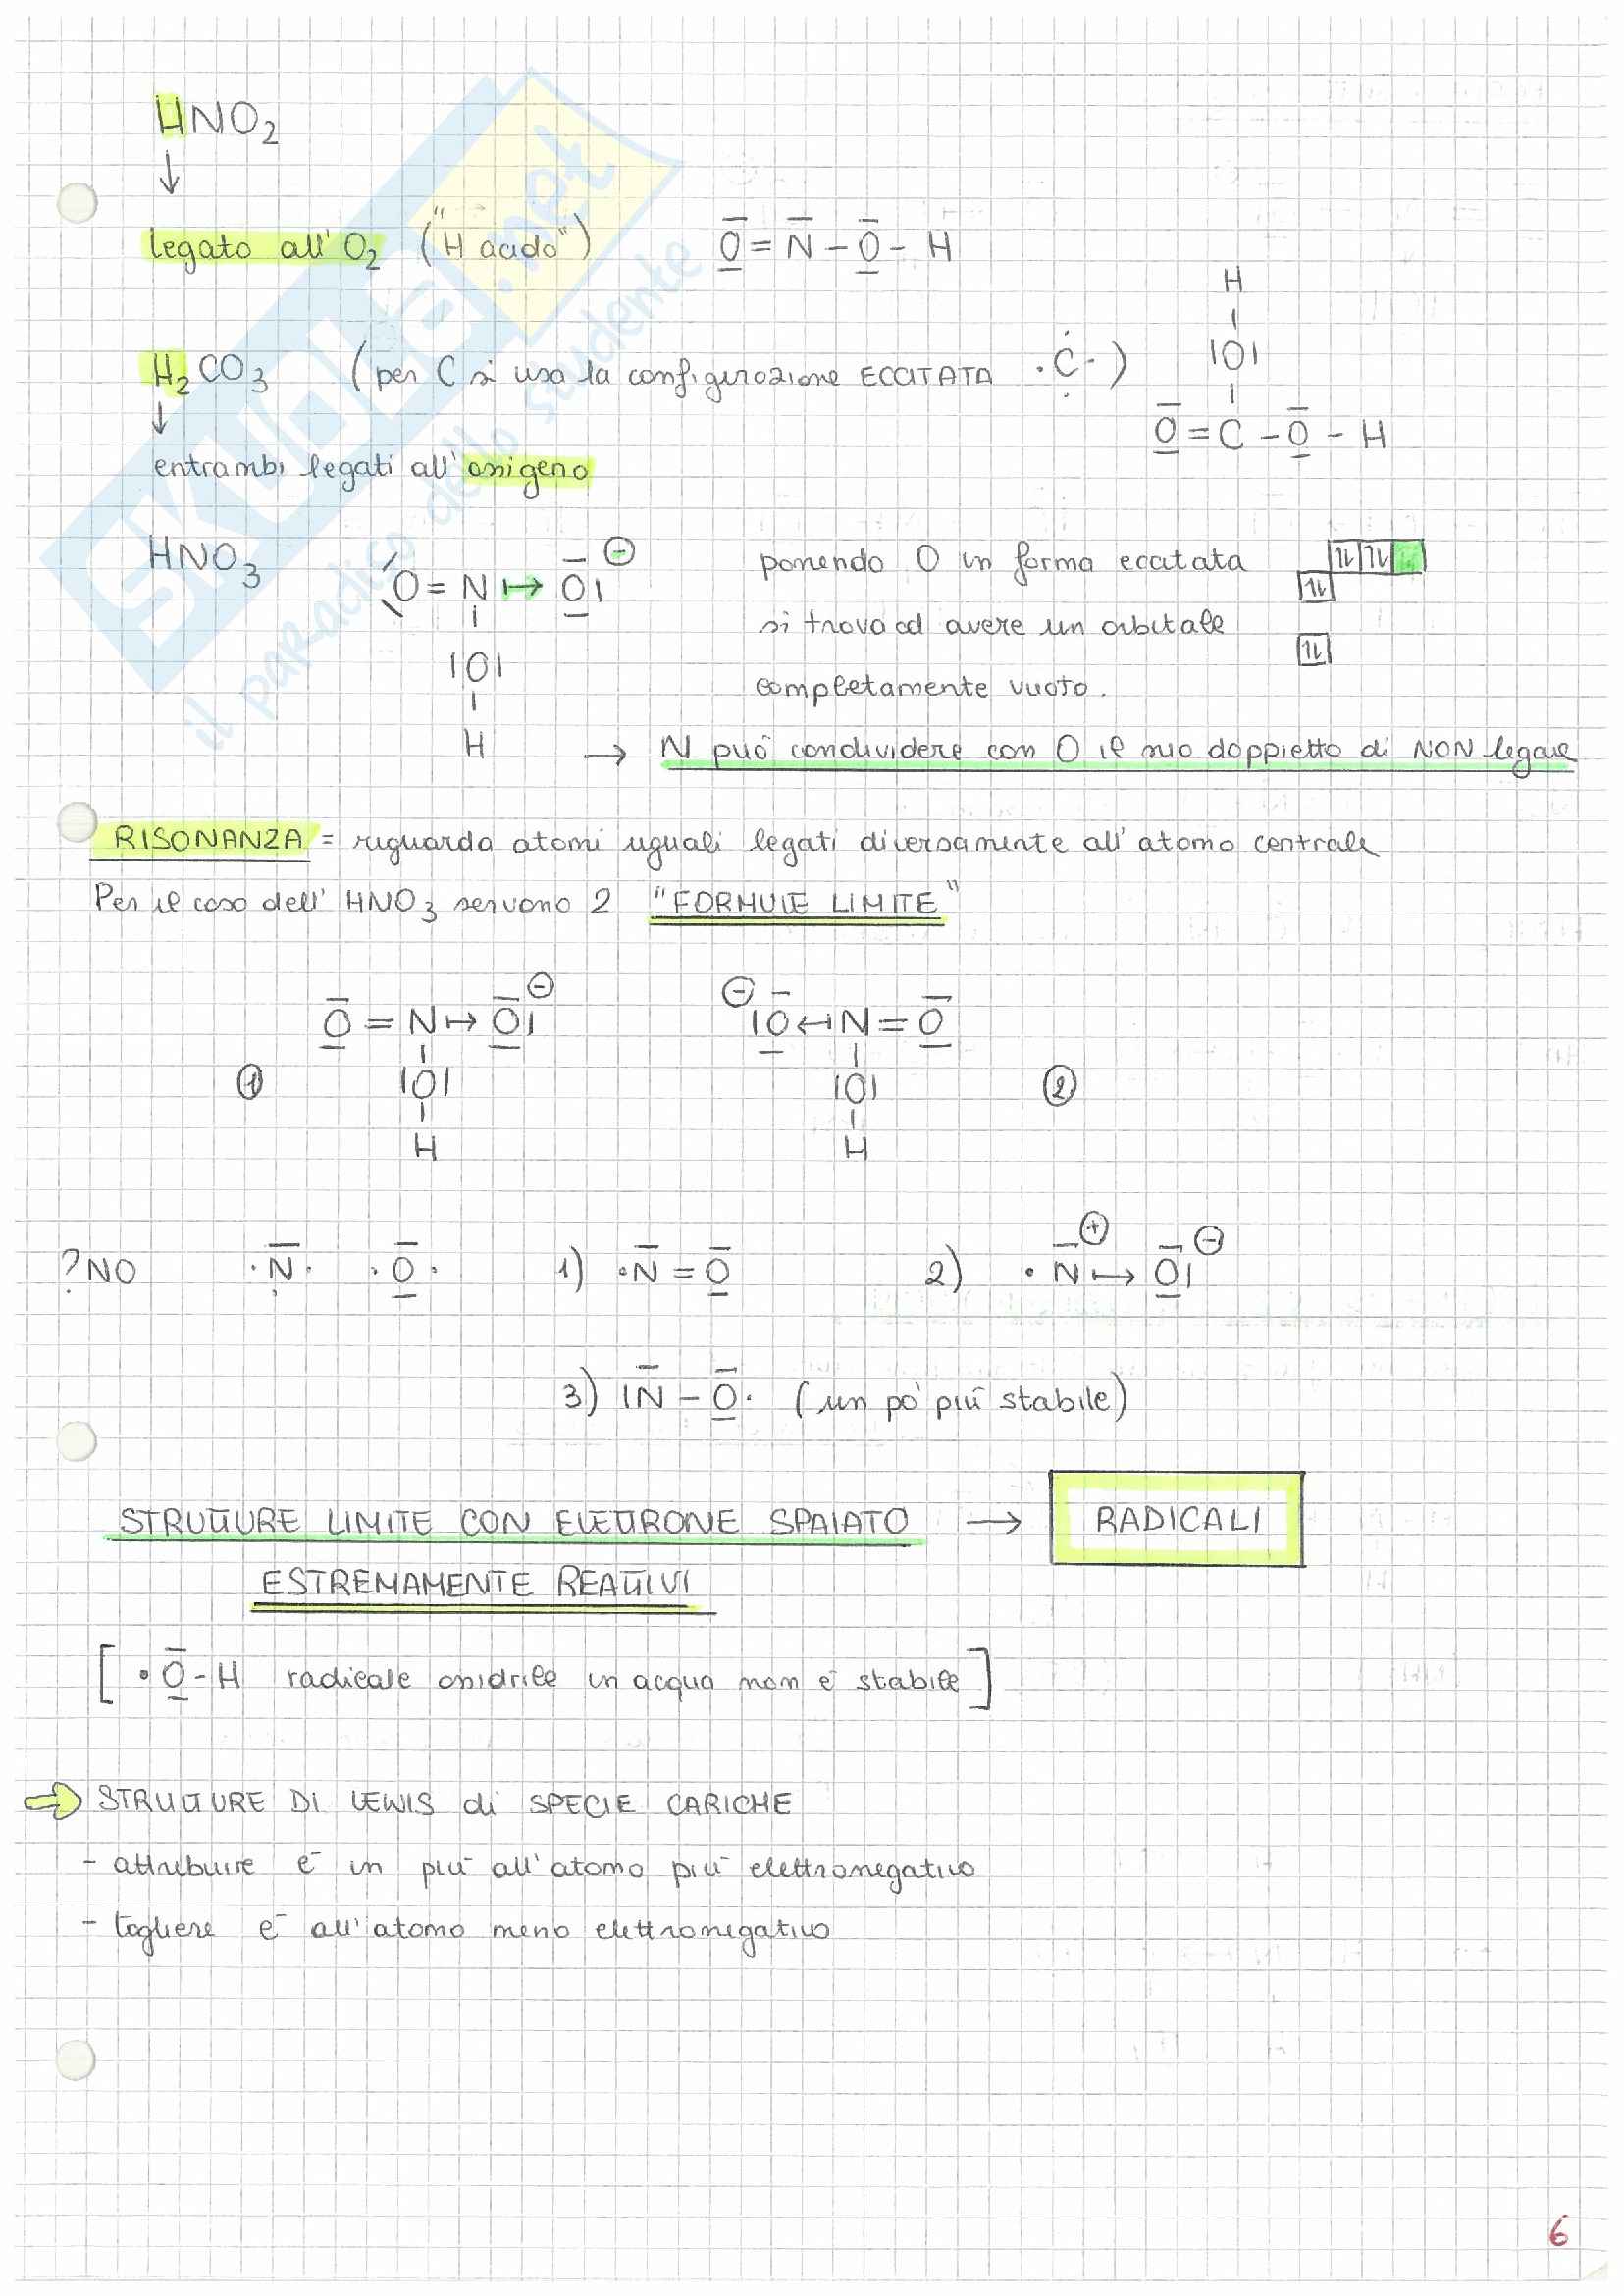 HNO2
↓
legato all'O2 ("H acido") O=N-O-H
H
H2CO3 (per C si usa la configurazione ECCITATA ·C·) |O|
↓ O=C-O-H
entrambi legati all'ossigeno
HNO3 O=N↦O| ⊖ ponendo O in forma eccitata
si trova ad avere un orbitale
|O| completamente vuoto.
H → N può condividere con O il suo doppietto di NON legame
RISONANZA = riguarda atomi uguali legati diversamente all'atomo centrale
Per il caso dell' HNO3 servono 2 "FORMULE LIMITE"
O=N↦O| ⊖ ⊖ |O↤N=O
① |O| |O| ②
H H
?NO ·N· ·O· 1) ·N=O 2) ·N↦O| ⊕ ⊖
3) |N-O· (un pò più stabile)
STRUTTURE LIMITE CON ELETTRONE SPAIATO → RADICALI
ESTREMAMENTE REATTIVI
[·O-H radicale ossidrile in acqua non è stabile]
⇒ STRUTTURE DI LEWIS di SPECIE CARICHE
- attribuire e- in più all'atomo più elettronegativo
- togliere e- all'atomo meno elettronegativo
6
SKUOLA.net
il paradiso dello studente